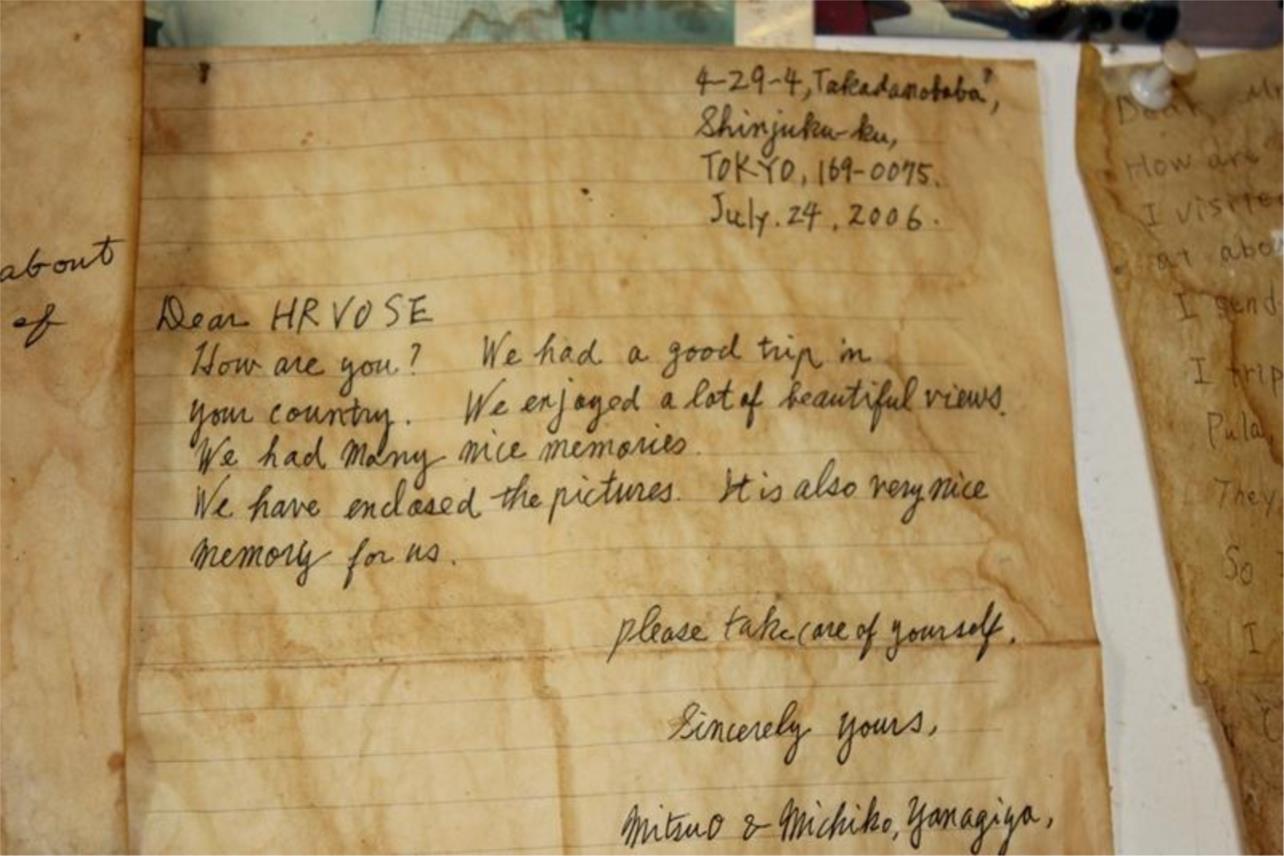 about
of
4-29-4, Takadanobaba,
Shinjuku-ku,
TOKYO, 169-0075.
July. 24, 2006.
Dear HRVOSE
How are you? We had a good trip in
your country. We enjoyed a lot of beautiful views.
We had many nice memories.
We have enclosed the pictures. It is also very nice
memory for us.
please take care of yourself.
Sincerely yours,
Mitsuo & Michiko, Yanagiya,
Dear
How are
I visite
at abo
I send
I trip
Pula,
They
So
I